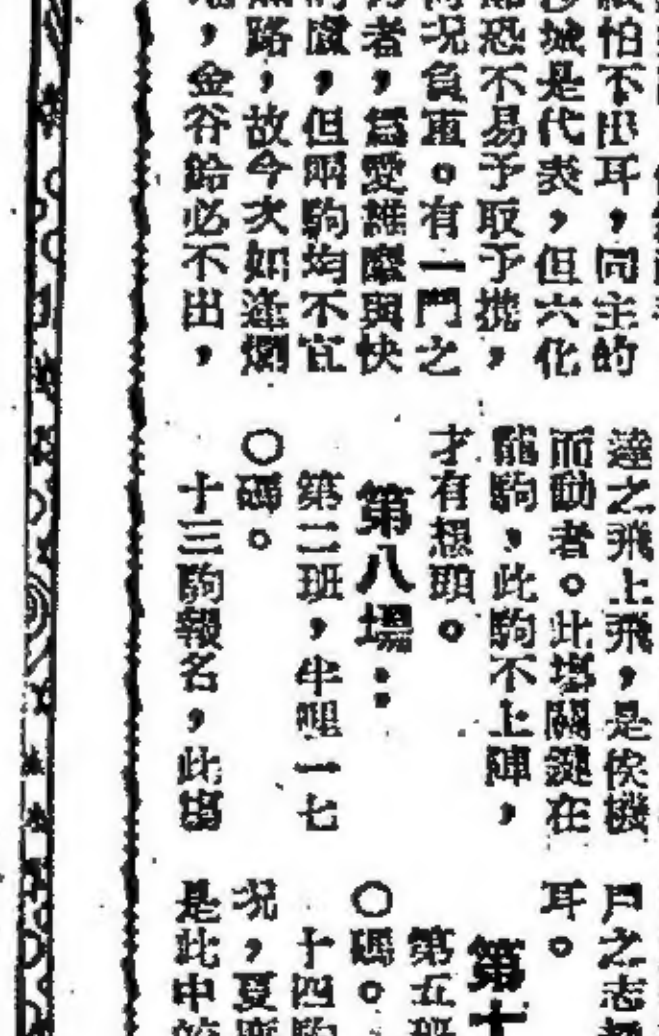 怕不出耳,同主的
沙城是代表,但六化
恐不易予取予攜,
況負重。有一門之
者,為愛誰縻與快
廄,但兩駒均不宜
路,故今次如逢爛
,金谷鈴必不出,
達之飛上飛,是俟機
而動者。此場關鍵在
龍駒,此駒不上陣,
才有想頭。
第八場:
第二班,半哩一七
〇碼。
十三駒報名,此場
戶之志
耳。
第十
第五班
〇碼。
十四駒
況,夏
是此中